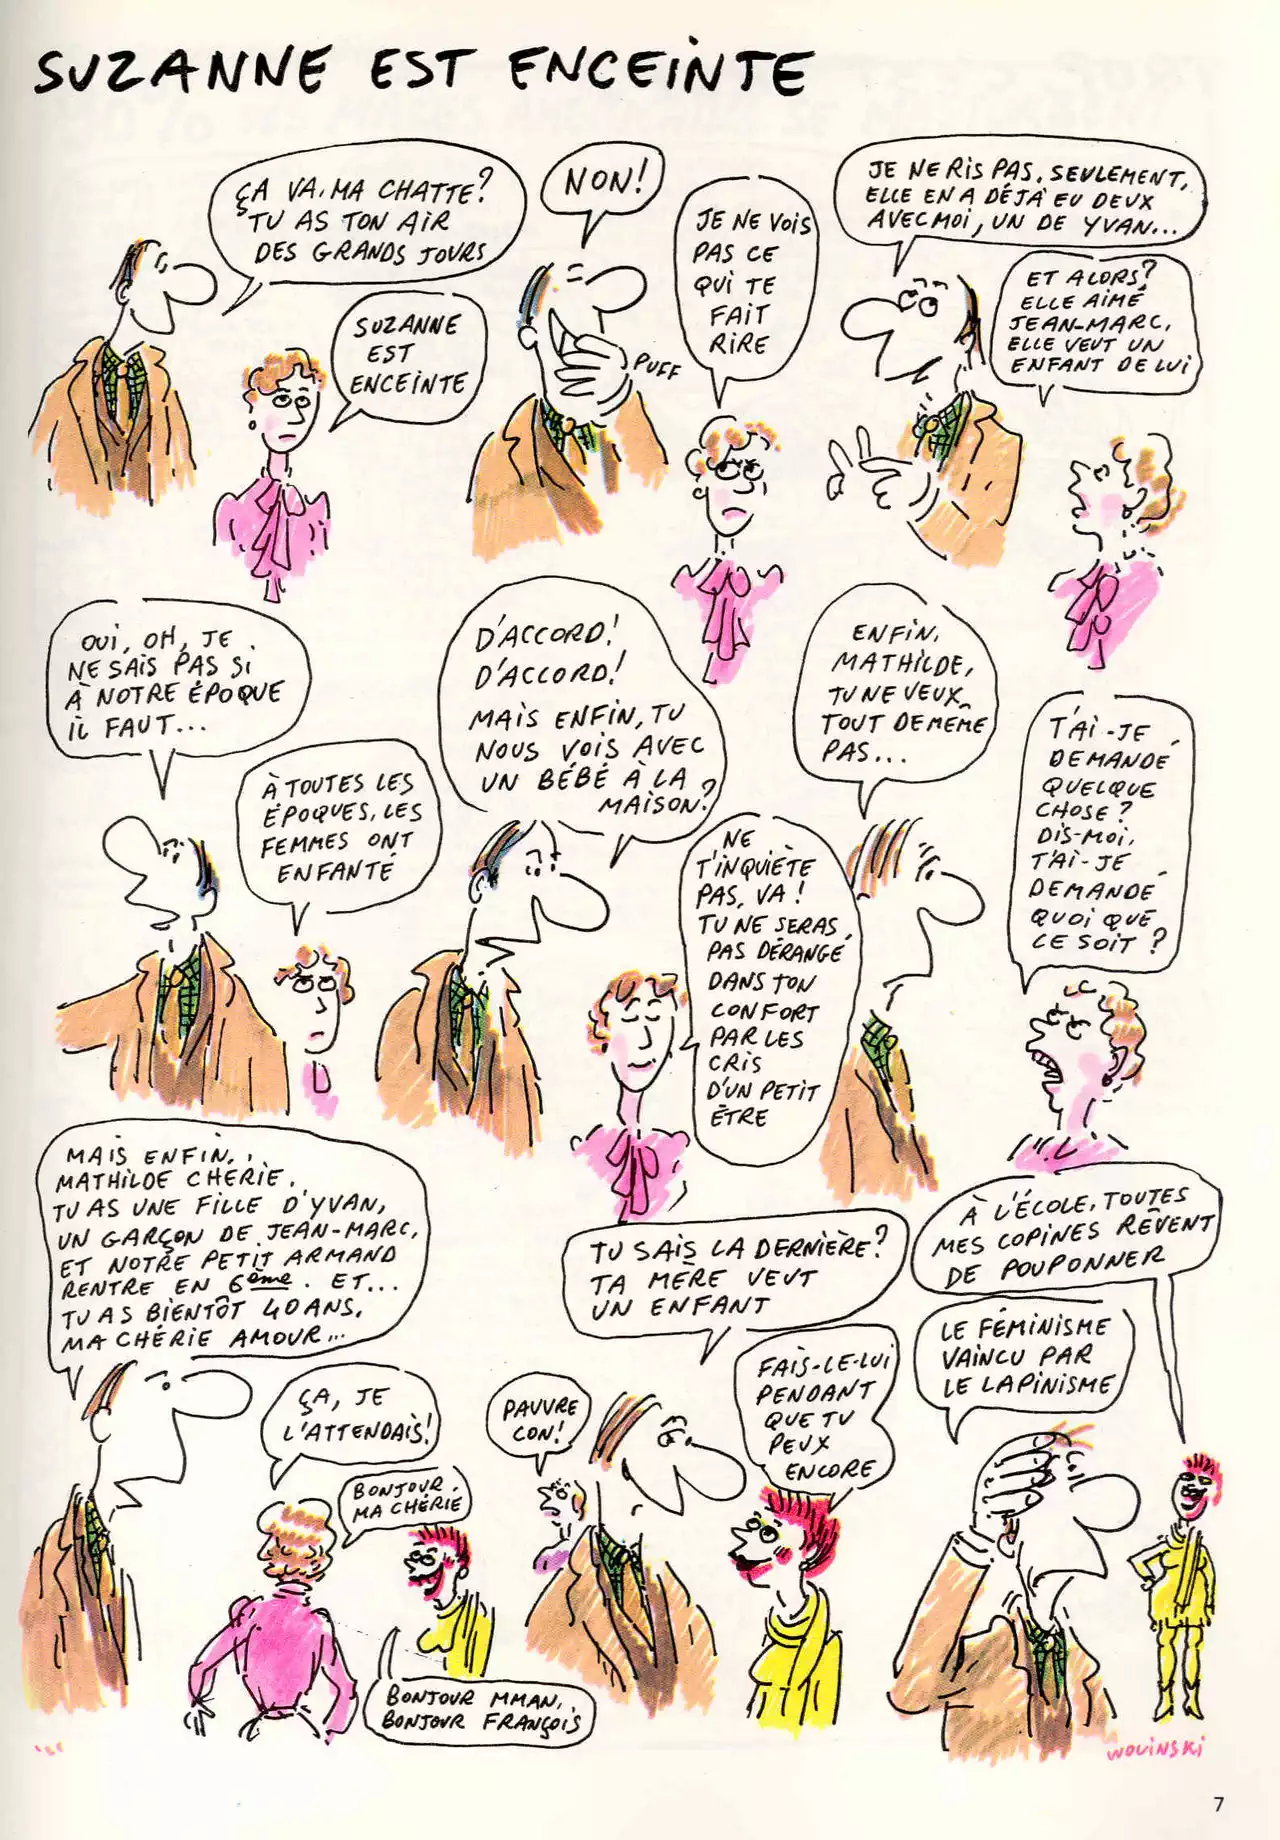 SUZANNE EST ENCEINTE
ÇA VA, MA CHATTE?
TU AS TON AIR
DES GRANDS JOURS
SUZANNE
EST
ENCEINTE
NON!
PUFF
JE NE VOIS
PAS CE
QUI TE
FAIT
RIRE
JE NE RIS PAS, SEULEMENT,
ELLE EN A DÉJÀ EU DEUX
AVEC MOI, UN DE YVAN...
ET ALORS?
ELLE AIME
JEAN-MARC,
ELLE VEUT UN
ENFANT DE LUI
OUI, OH, JE
NE SAIS PAS SI
À NOTRE ÉPOQUE
IL FAUT...
À TOUTES LES
ÉPOQUES, LES
FEMMES ONT
ENFANTÉ
D'ACCORD!
D'ACCORD!
MAIS ENFIN, TU
NOUS VOIS AVEC
UN BÉBÉ À LA
MAISON?
NE
T'INQUIÈTE
PAS, VA!
TU NE SERAS
PAS DÉRANGÉ
DANS TON
CONFORT
PAR LES
CRIS
D'UN PETIT
ÊTRE
ENFIN,
MATHILDE,
TU NE VEUX
TOUT DE MÊME
PAS...
T'AI-JE
DEMANDÉ
QUELQUE
CHOSE?
DIS-MOI,
T'AI-JE
DEMANDÉ
QUOI QUE
CE SOIT?
MAIS ENFIN,
MATHILDE CHÉRIE,
TU AS UNE FILLE D'YVAN,
UN GARÇON DE JEAN-MARC,
ET NOTRE PETIT ARMAND
RENTRE EN 6ème. ET...
TU AS BIENTÔT 40 ANS,
MA CHÉRIE AMOUR...
ÇA, JE
L'ATTENDAIS!
BONJOUR,
MA CHÉRIE
BONJOUR MMAN,
BONJOUR FRANÇOIS
TU SAIS LA DERNIÈRE?
TA MÈRE VEUT
UN ENFANT
PAUVRE
CON!
FAIS-LE-LUI
PENDANT
QUE TU
PEUX
ENCORE
À L'ÉCOLE, TOUTES
MES COPINES RÊVENT
DE POUPONNER
LE FÉMINISME
VAINCU PAR
LE LAPINISME
WOLINSKI
7